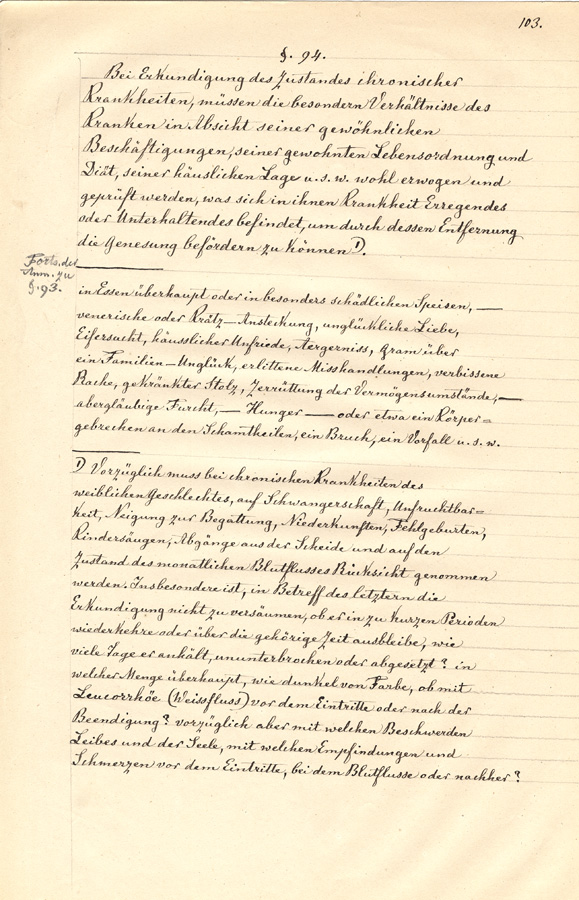 103.
§. 94.
Bei Erkundigung des Zustandes chronischer
Krankheiten, müssen die besondern Verhältnisse des
Kranken in Absicht seiner gewöhnlichen
Beschäftigungen, seiner gewohnten Lebensordnung und
Diät, seiner häuslichen Lage u. s. w. wohl erwogen und
geprüft werden, was sich in ihnen Krankheit Erregendes
oder Unterhaltendes befindet, um durch dessen Entfernung
die Genesung befördern zu können 1).
Forts. der
Anm. zu
§. 93.
in Essen überhaupt oder in besonders schädlichen Speisen, —
venerische oder Krätz-Ansteckung, unglückliche Liebe,
Eifersucht, häusslicher Unfriede, Aergerniss, Gram über
ein Familien-Unglück, erlittene Misshandlungen, verbissene
Rache, gekränkter Stolz, Zerrüttung der Vermögensumstände, —
abergläubige Furcht, — Hunger — oder etwa ein Körper=
gebrechen an den Schamtheilen, ein Bruch, ein Vorfall u. s. w.
1) Vorzüglich muss bei chronischen Krankheiten des
weiblichen Geschlechtes, auf Schwangerschaft, Unfruchtbar=
keit, Neigung zur Begattung, Niederkunften, Fehlgeburten,
Kindersäugen, Abgänge aus der Scheide und auf den
Zustand des monatlichen Blutflusses Rücksicht genommen
werden. Insbesondere ist, in Betreff des letztern die
Erkundigung nicht zu versäumen, ob er in zu kurzen Perioden
wiederkehre oder über die gehörige Zeit ausbleibe, wie
viele Tage er anhält, ununterbrochen oder abgesetzt? in
welcher Menge überhaupt, wie dunkel von Farbe, ob mit
Leucorrhöe (Weissfluss) vor dem Eintritte oder nach der
Beendigung? vorzüglich aber mit welchen Beschwerden
Leibes und der Seele, mit welchen Empfindungen und
Schmerzen vor dem Eintritte, bei dem Blutflusse oder nachher?